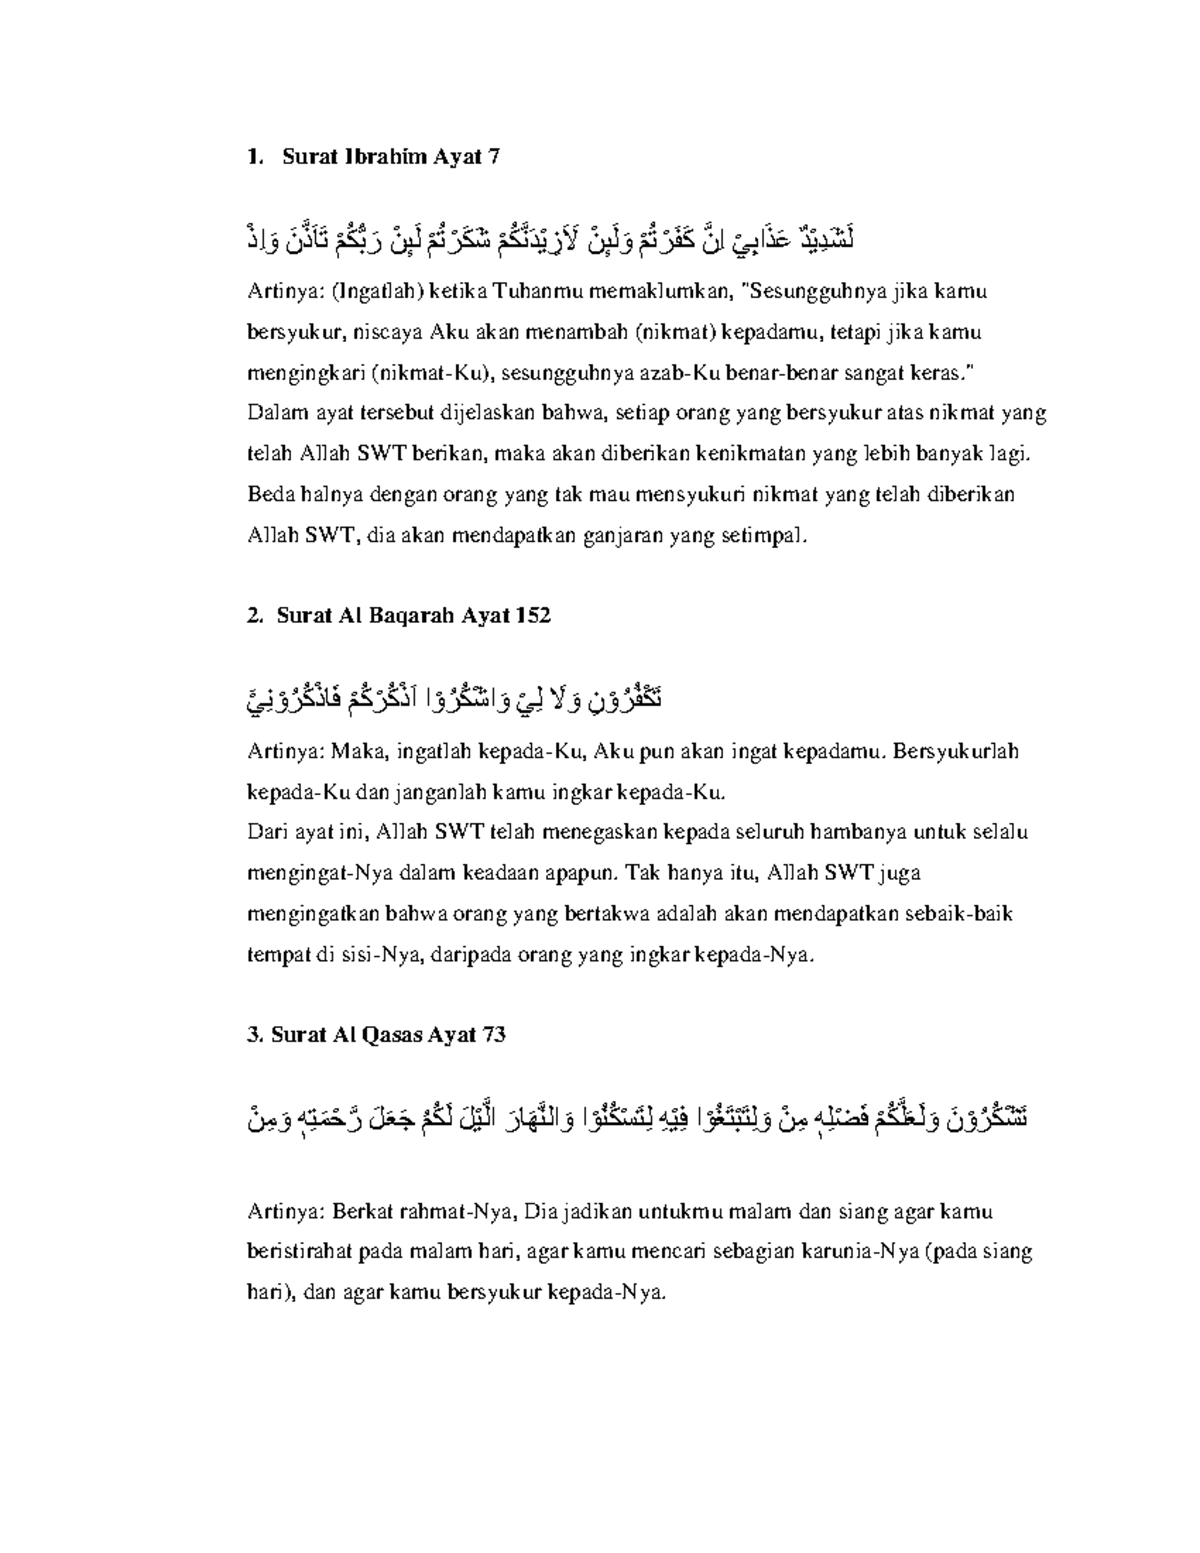 1. Surat Ibrahim Ayat 7
لَشَدِيْدٌ عَذَابِيْ اِنَّ كَفَرْتُمْ وَلَىِٕنْ لَاَزِيْدَنَّكُمْ شَكَرْتُمْ لَىِٕنْ رَبُّكُمْ تَاَذَّنَ وَاِذْ
Artinya: (Ingatlah) ketika Tuhanmu memaklumkan, "Sesungguhnya jika kamu
bersyukur, niscaya Aku akan menambah (nikmat) kepadamu, tetapi jika kamu
mengingkari (nikmat-Ku), sesungguhnya azab-Ku benar-benar sangat keras."
Dalam ayat tersebut dijelaskan bahwa, setiap orang yang bersyukur atas nikmat yang
telah Allah SWT berikan, maka akan diberikan kenikmatan yang lebih banyak lagi.
Beda halnya dengan orang yang tak mau mensyukuri nikmat yang telah diberikan
Allah SWT, dia akan mendapatkan ganjaran yang setimpal.
2. Surat Al Baqarah Ayat 152
تَكْفُرُوْنِ وَلَا لِيْ وَاشْكُرُوْا اَذْكُرْكُمْ فَاذْكُرُوْنِيْٓ
Artinya: Maka, ingatlah kepada-Ku, Aku pun akan ingat kepadamu. Bersyukurlah
kepada-Ku dan janganlah kamu ingkar kepada-Ku.
Dari ayat ini, Allah SWT telah menegaskan kepada seluruh hambanya untuk selalu
mengingat-Nya dalam keadaan apapun. Tak hanya itu, Allah SWT juga
mengingatkan bahwa orang yang bertakwa adalah akan mendapatkan sebaik-baik
tempat di sisi-Nya, daripada orang yang ingkar kepada-Nya.
3. Surat Al Qasas Ayat 73
تَشْكُرُوْنَ وَلَعَلَّكُمْ فَضْلِهٖ مِنْ وَلِتَبْتَغُوْا فِيْهِ لِتَسْكُنُوْا وَالنَّهَارَ الَّيْلَ لَكُمُ جَعَلَ رَّحْمَتِهٖ وَمِنْ
Artinya: Berkat rahmat-Nya, Dia jadikan untukmu malam dan siang agar kamu
beristirahat pada malam hari, agar kamu mencari sebagian karunia-Nya (pada siang
hari), dan agar kamu bersyukur kepada-Nya.